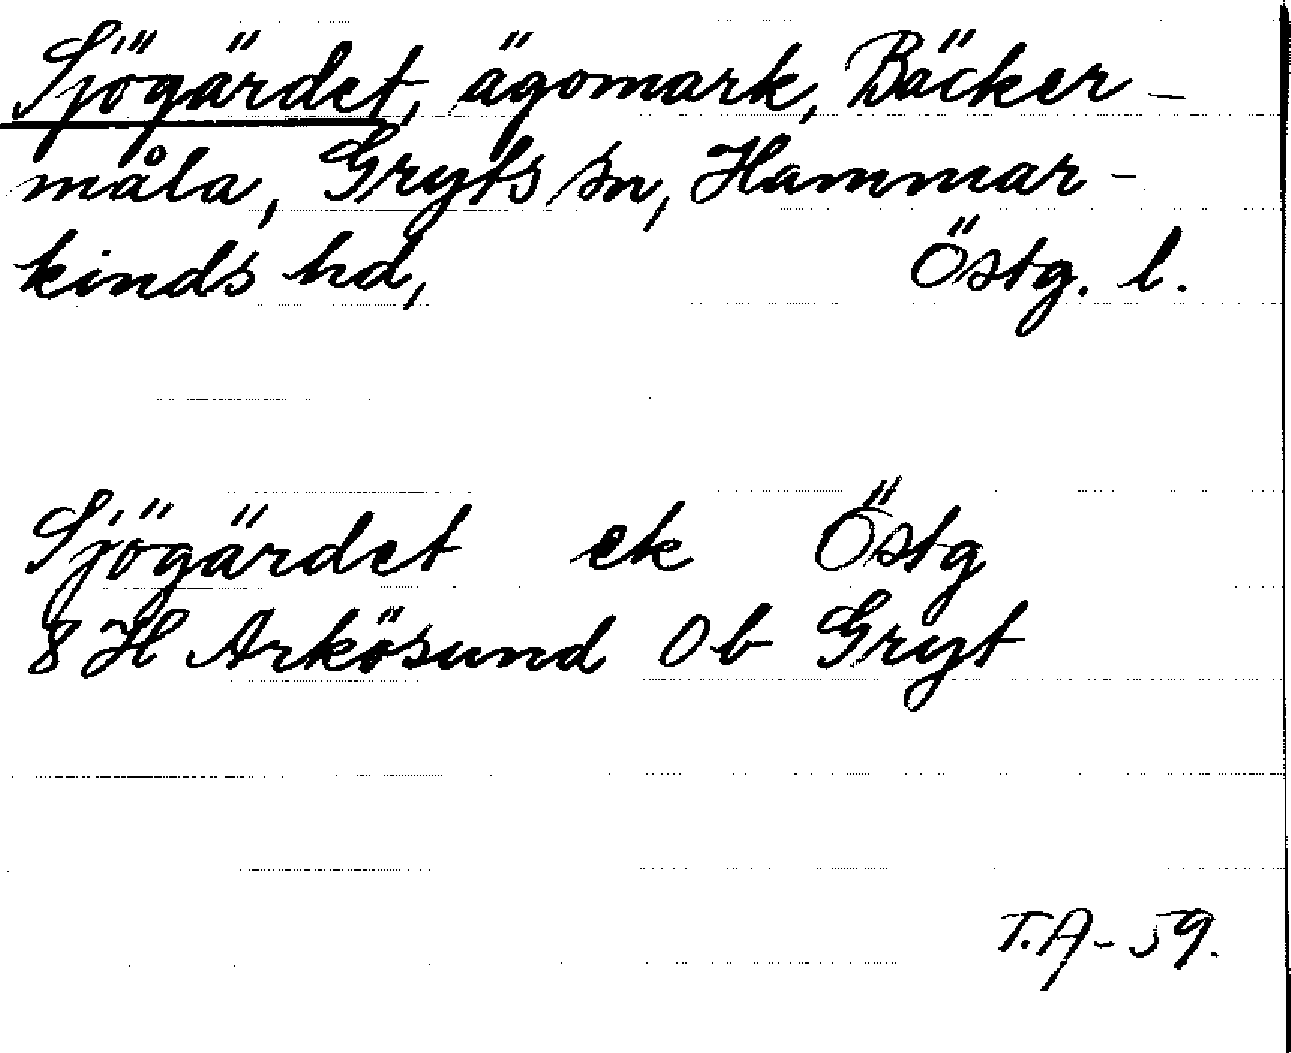 Sjögärdet, ägomark, Bäcker-
måla, Gryts sn, Hammar-
kinds hd, Östg. l.
Sjögärdet ek Östg
8 H Arkösund 0b Gryt
T.A-59.